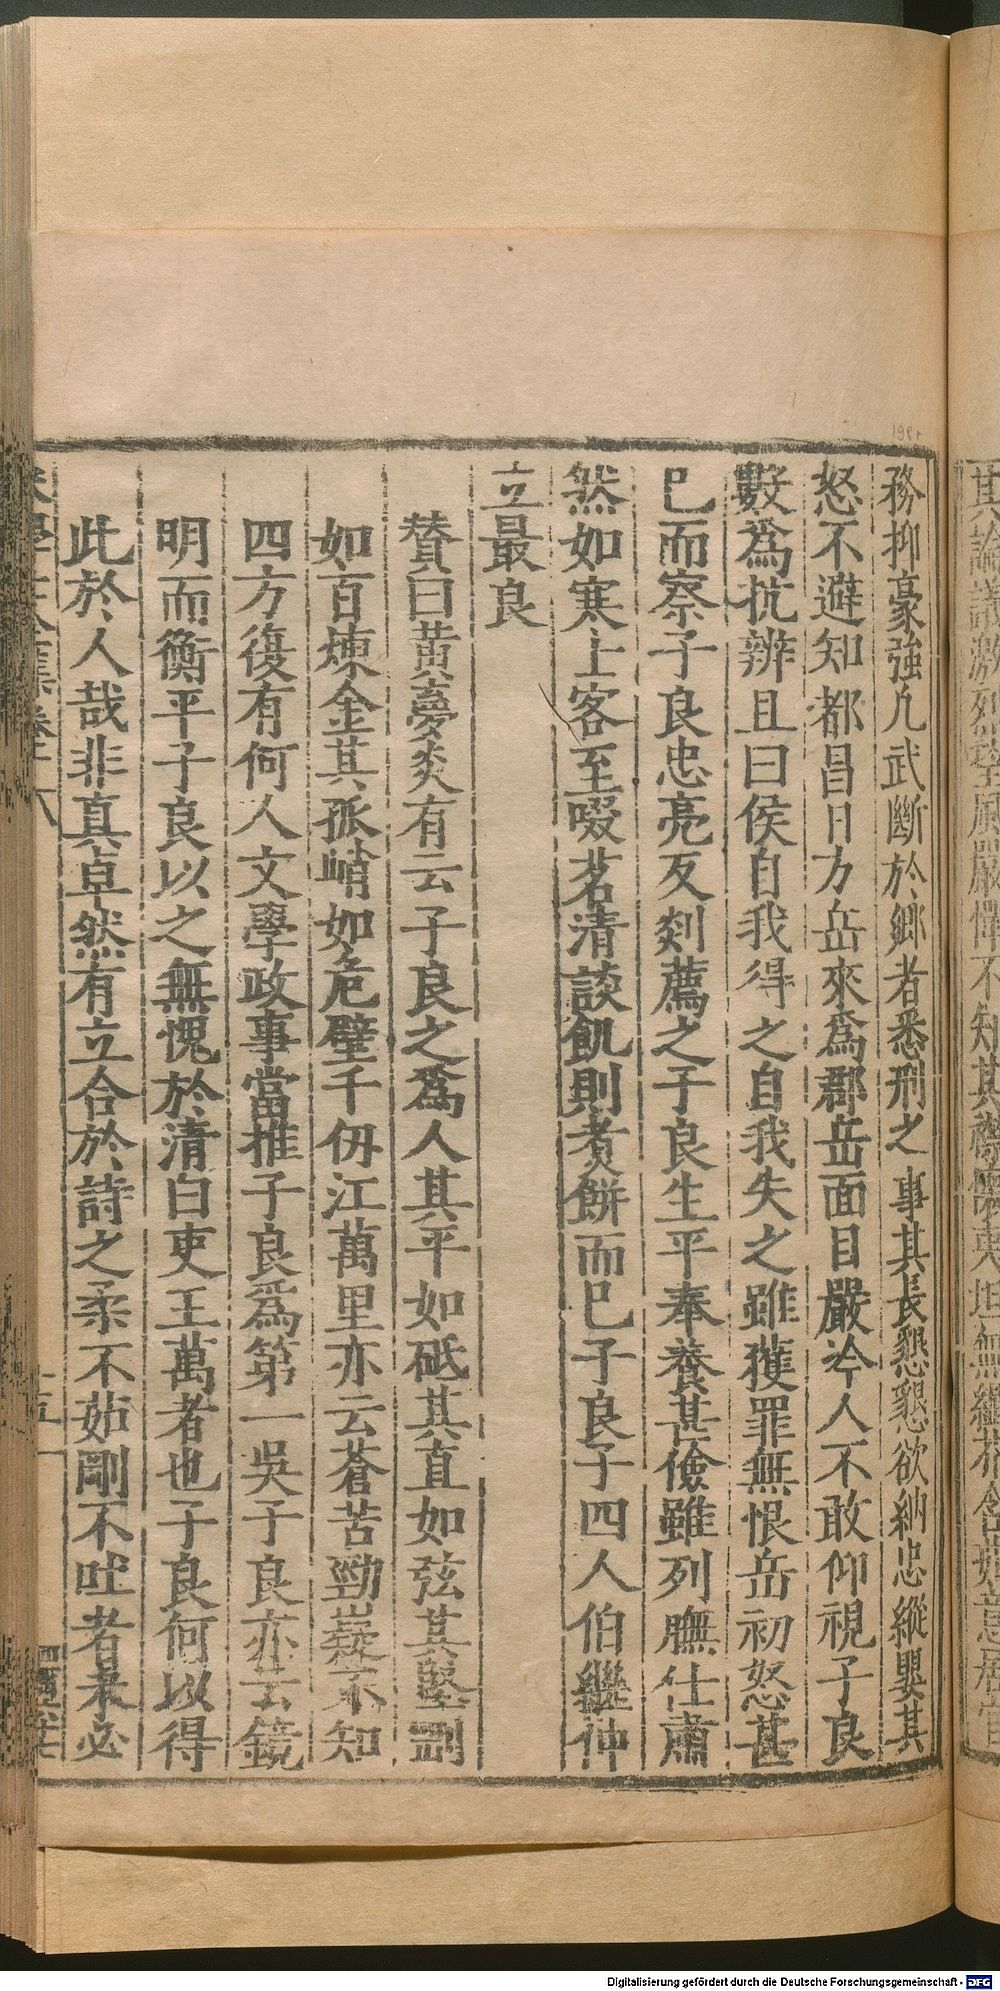 務抑豪強凡武斷於鄉者悉刑之事其長懇懇欲納忠縱巽其
怒不避知都昌日方岳來爲郡岳面目嚴冷人不敢仰視子良
數爲抗辨且曰侯自我得之自我失之雖獲罪無恨岳初怒甚
已而察子良忠亮反剡薦之子良生平奉養甚儉雖列膴仕肅
然如寒士客至啜茗清談飢則煮餅而已子良子四人伯繼仲
立最良
贊曰黃夢炎有云子良之爲人其平如砥其直如弦其堅剛
如百煉金其孤峭如危壁千仞江萬里亦云蒼苦勁嶷不知
四方復有何人文學政事當推子良爲第一吳子良亦云鏡
明而衡平子良以之無愧於清白吏王萬者也子良何以得
此於人哉非真卓然有立合於詩之柔不茹剛不吐者未必
其論議激烈
不知其
坦無纖芥
Digitalisierung gefördert durch die Deutsche Forschungsgemeinschaft - DFG